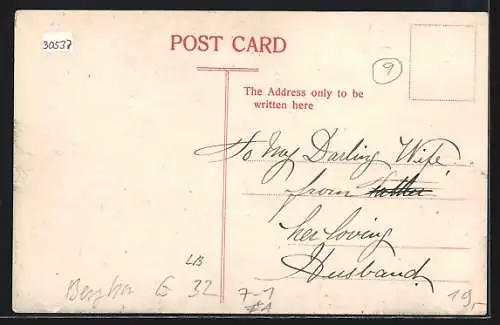 30537
POST CARD
9
The Address only to be
written here
To My Darling Wife
from
her loving
Husband
LB
G 32
7-1
19